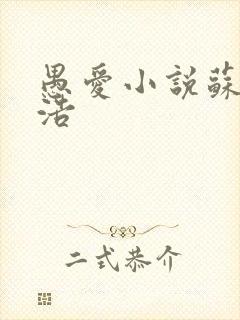 愚愛小說蘇
活
二式恭介